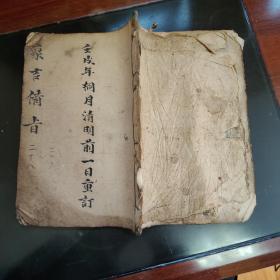 壬戌年桐月清明前一日重訂
錄言備旨